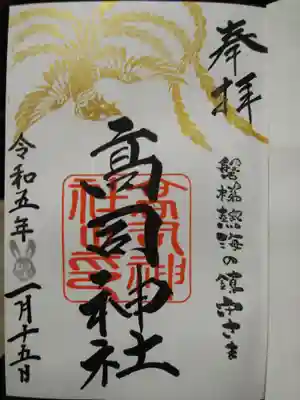 奉拝
磐梯熱海の鎮守さま
高司神社
令和五年一月十五日